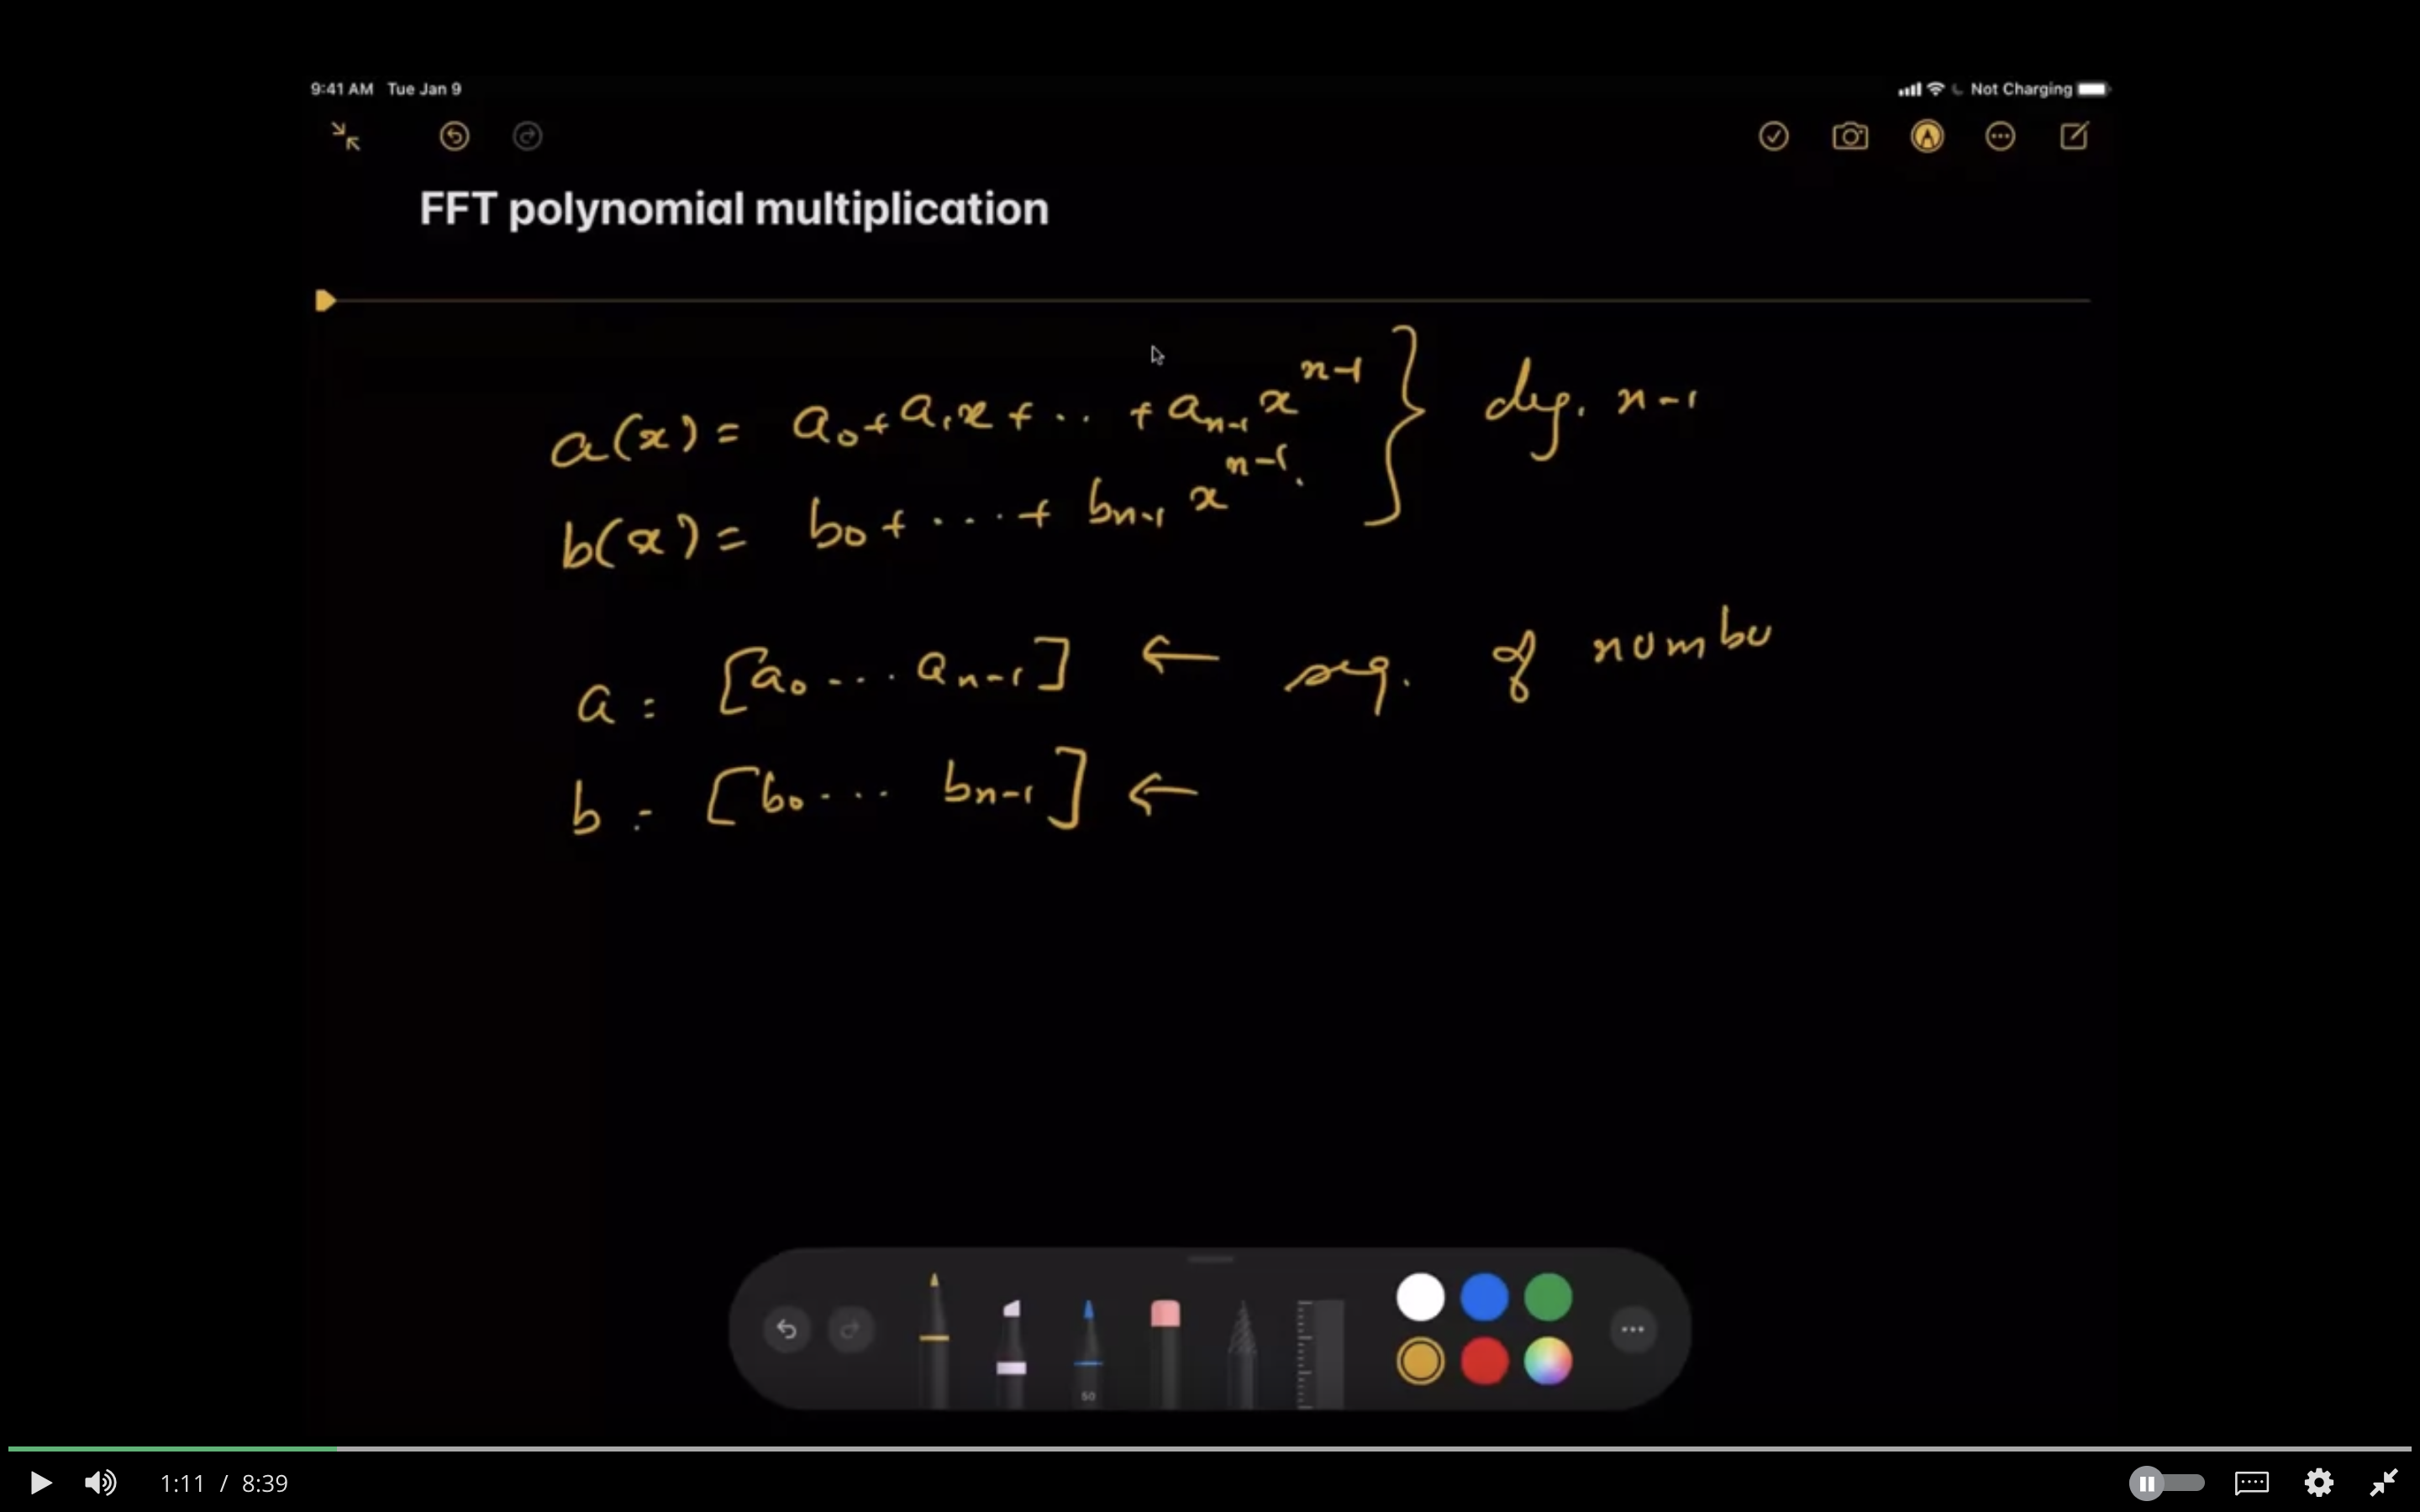 9:41 AM Tue Jan 9 Not Charging
FFT polynomial multiplication
a(x) = a₀ + a₁x + .. + aₙ₋₁ xⁿ⁻¹ } deg. n-1
b(x) = b₀ + ... + bₙ₋₁ xⁿ⁻¹.
a = [a₀ ... aₙ₋₁] ← seq. of numbe
b = [b₀ ... bₙ₋₁] ←
50
1:11 / 8:39